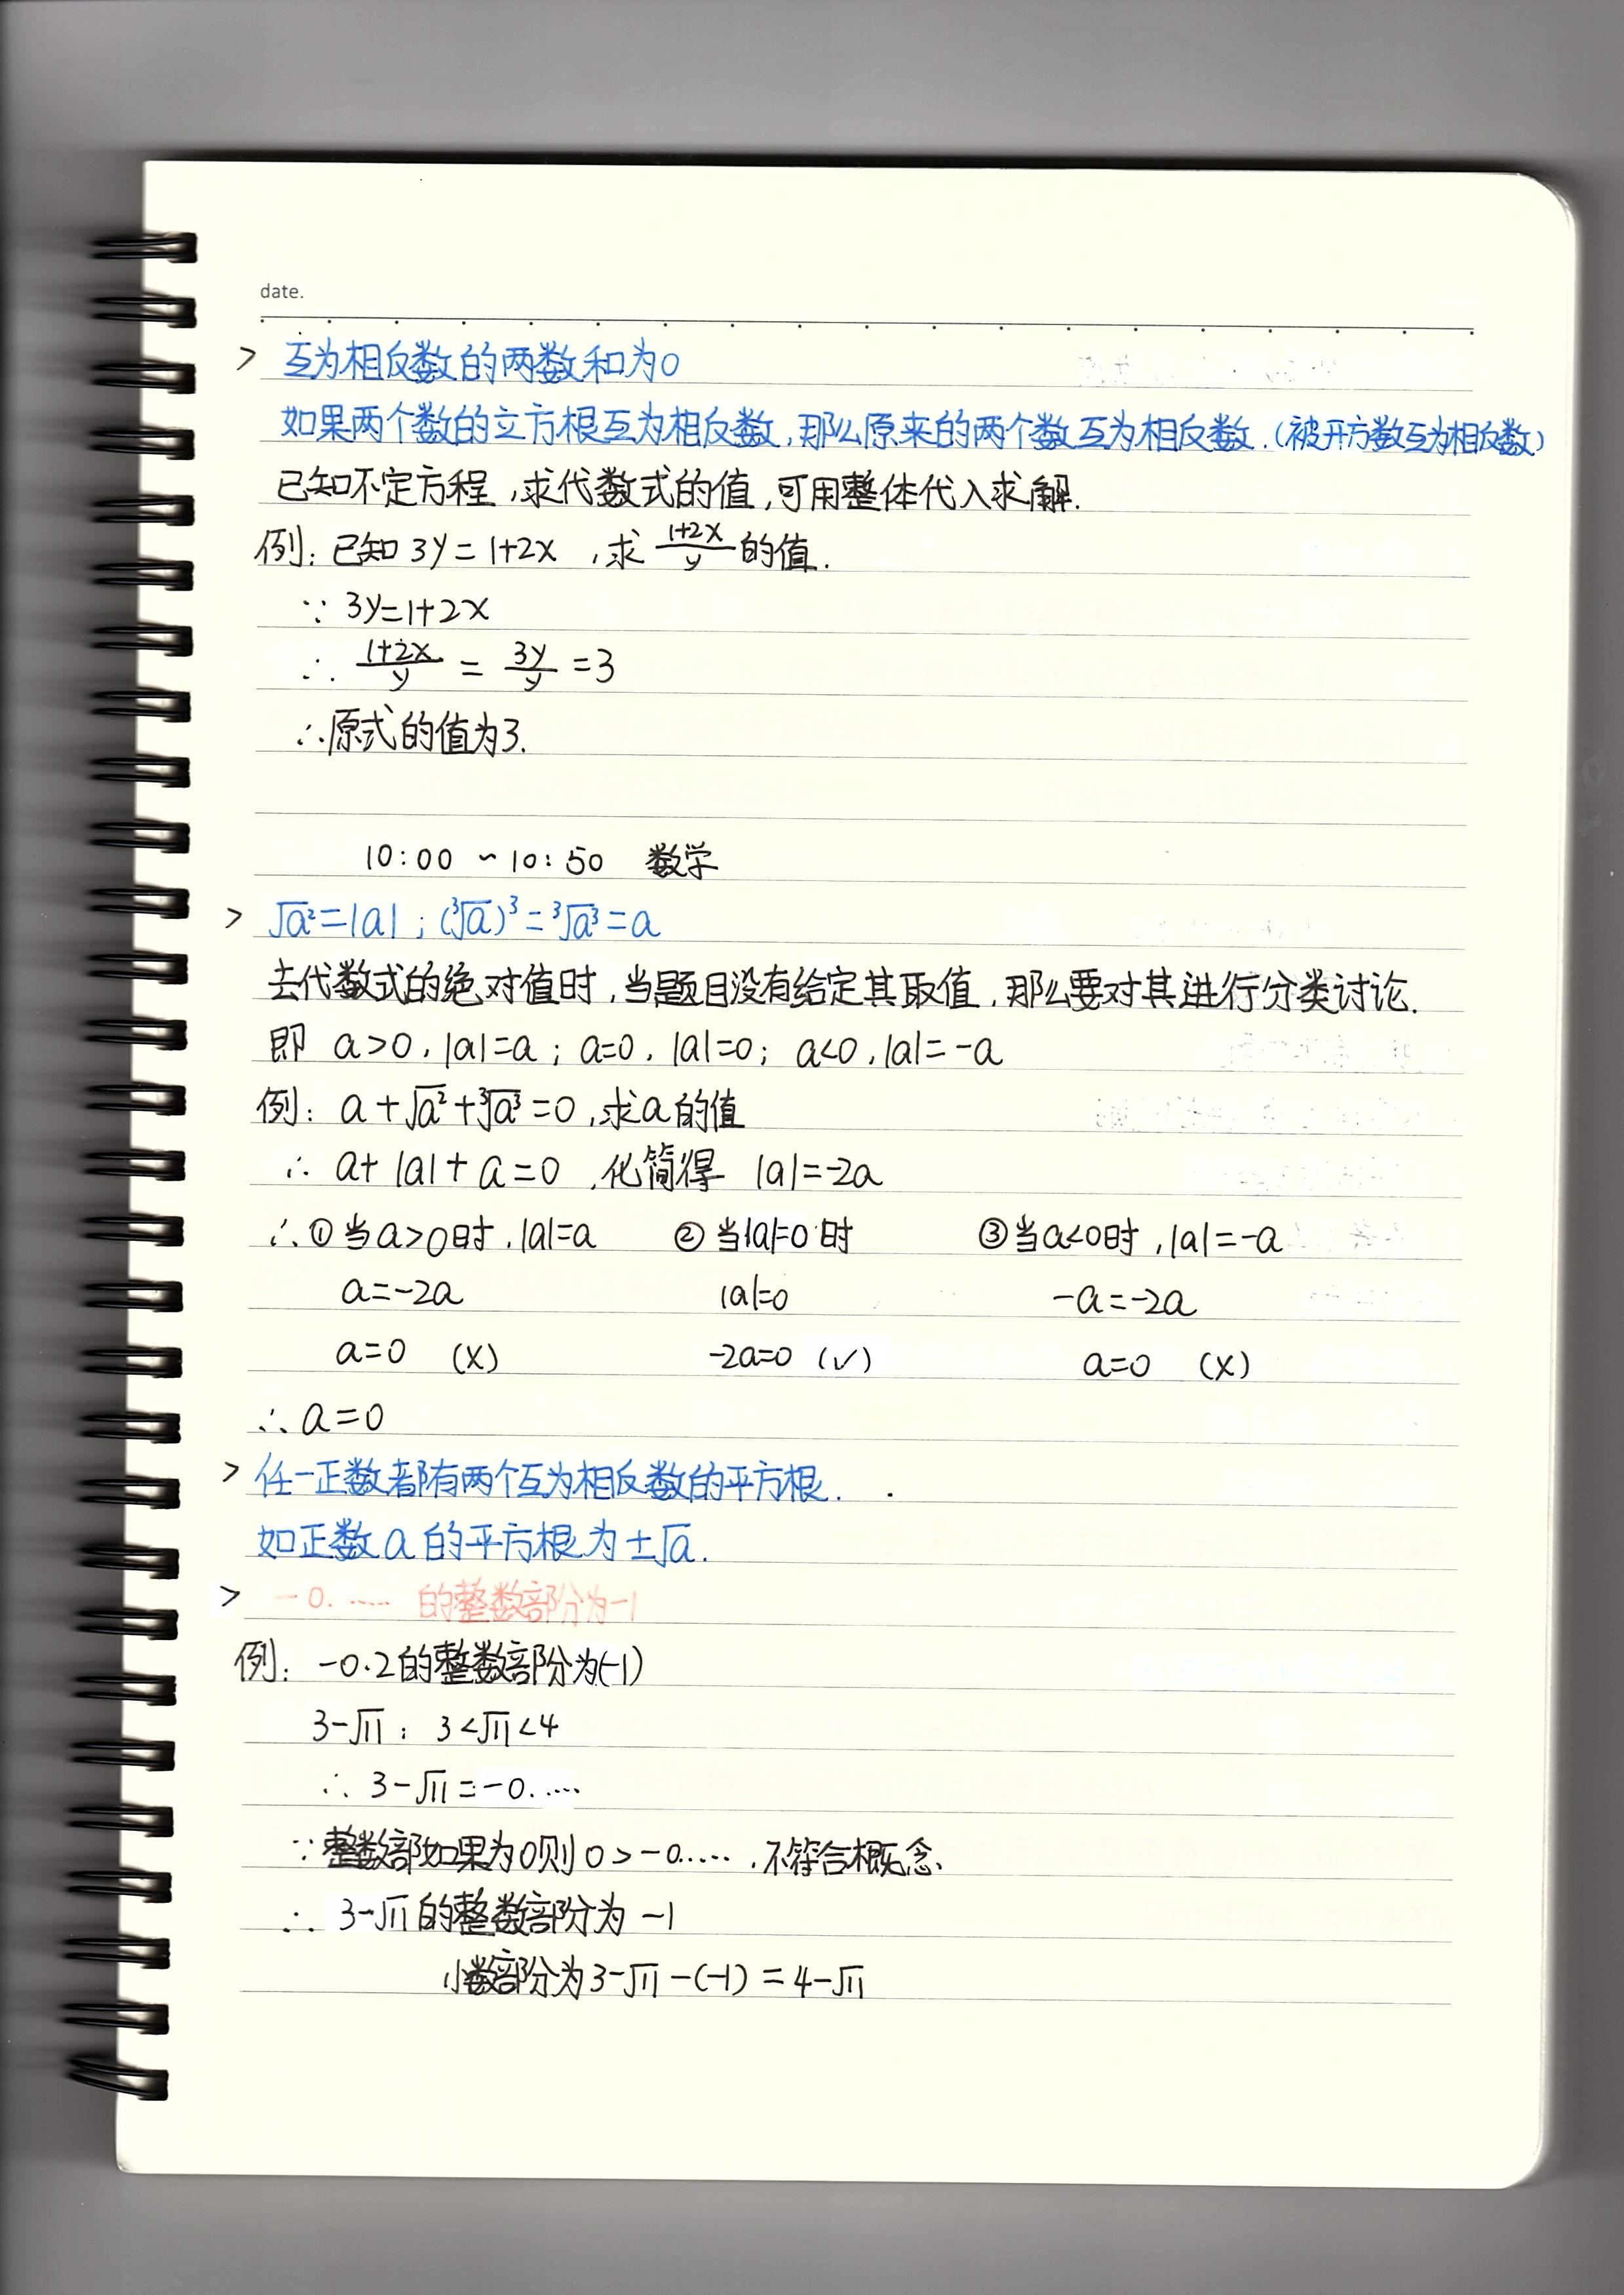 date.
> 互为相反数的两数和为0
如果两个数的立方根互为相反数,那么原来的两个数互为相反数.(被开方数互为相反数)
已知不定方程,求代数式的值,可用整体代入求解.
例:已知 3y=1+2x ,求 (1+2x)/y 的值.
∵ 3y=1+2x
∴ (1+2x)/y = 3y/y =3
∴原式的值为3.
10:00 ~ 10:50 数学
> √a²=|a| ; (³√a)³=³√a³=a
去代数式的绝对值时,当题目没有给定其取值,那么要对其进行分类讨论.
即 a>0,|a|=a; a=0,|a|=0; a<0,|a|=-a
例: a+√a²+³√a³=0,求a的值
∴ a+|a|+a=0 ,化简得 |a|=-2a
∴①当a>0时,|a|=a ②当|a|=0时 ③当a<0时,|a|=-a
a=-2a |a|=0 -a=-2a
a=0 (×) -2a=0 (√) a=0 (×)
∴a=0
> 任一正数都有两个互为相反数的平方根.
如正数a的平方根为±√a.
> -0.…… 的整数部分为-1
例: -0.2的整数部分为(-1)
3-√11: 3<√11<4
∴ 3-√11=-0.……
∵整数部如果为0则0>-0.……,不符合概念.
∴ 3-√11的整数部分为 -1
小数部分为3-√11-(-1)=4-√11